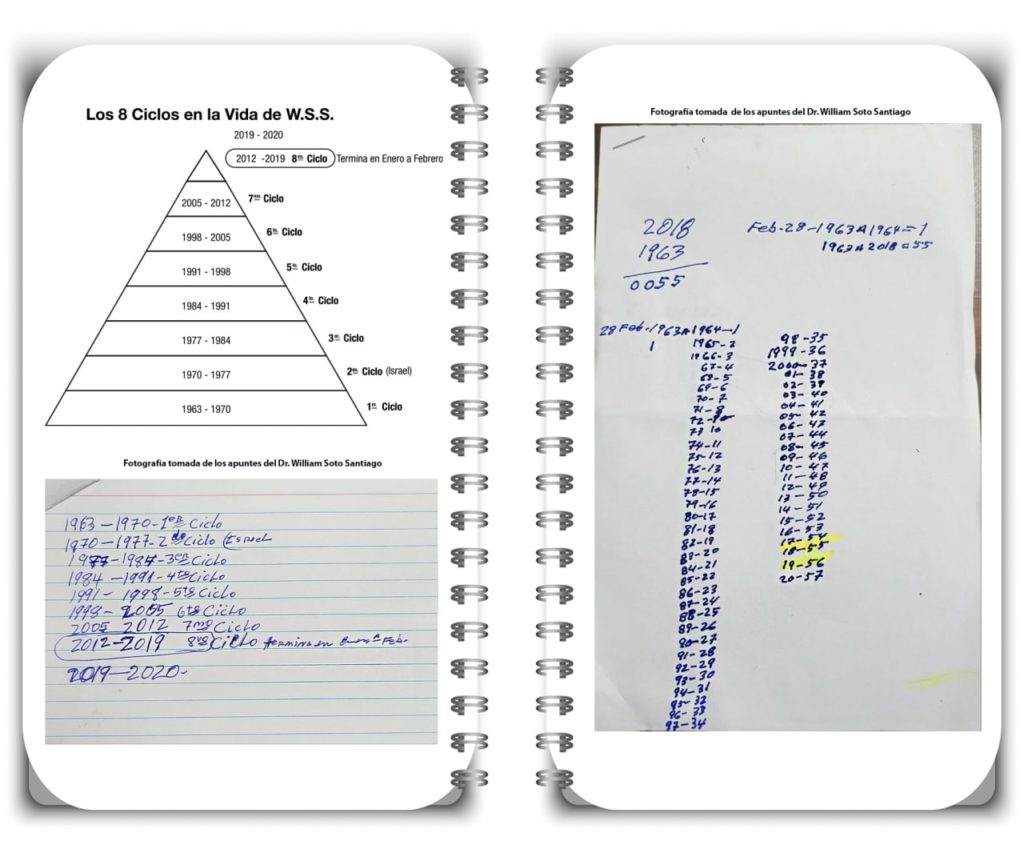 Los 8 Ciclos en la Vida de W.S.S.
2019 - 2020
2012 -2019 8vo Ciclo Termina en Enero a Febrero
2005 - 2012 7mo Ciclo
1998 - 2005 6to Ciclo
1991 - 1998 5to Ciclo
1984 - 1991 4to Ciclo
1977 - 1984 3er Ciclo
1970 - 1977 2do Ciclo (Israel)
1963 - 1970 1er Ciclo
Fotografía tomada de los apuntes del Dr. William Soto Santiago
1963 - 1970 - 1er Ciclo
1970 - 1977 - 2do Ciclo (Israel
1977 - 1984 - 3er Ciclo
1984 - 1991 - 4to Ciclo
1991 - 1998 - 5to Ciclo
1998 - 2005 6to Ciclo
2005 2012 7mo Ciclo
2012-2019 8vo Ciclo termina en Enero a Feb.
2019-2020-
Fotografía tomada de los apuntes del Dr. William Soto Santiago
2018
1963
0055
Feb-28-1963 A 1964=1
1963 A 2018=55
28 Feb-1963 A 1964-1
1
1965-2
1966-3
67-4
68-5
69-6
70-7
71-8
72-9
73 10
74-11
75-12
76-13
77-14
78-15
79-16
80-17
81-18
82-19
83-20
84-21
85-22
86-23
87-24
88-25
89-26
90-27
91-28
92-29
93-30
94-31
95-32
96-33
97-34
98-35
1999-36
2000-37
01-38
02-39
03-40
04-41
05-42
06-43
07-44
08-45
09-46
10-47
11-48
12-49
13-50
14-51
15-52
16-53
17-54
18-55
19-56
20-57